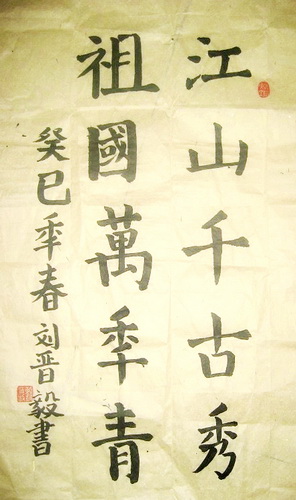 江山千古秀
祖國萬年青
癸巳年春刘晋毅書